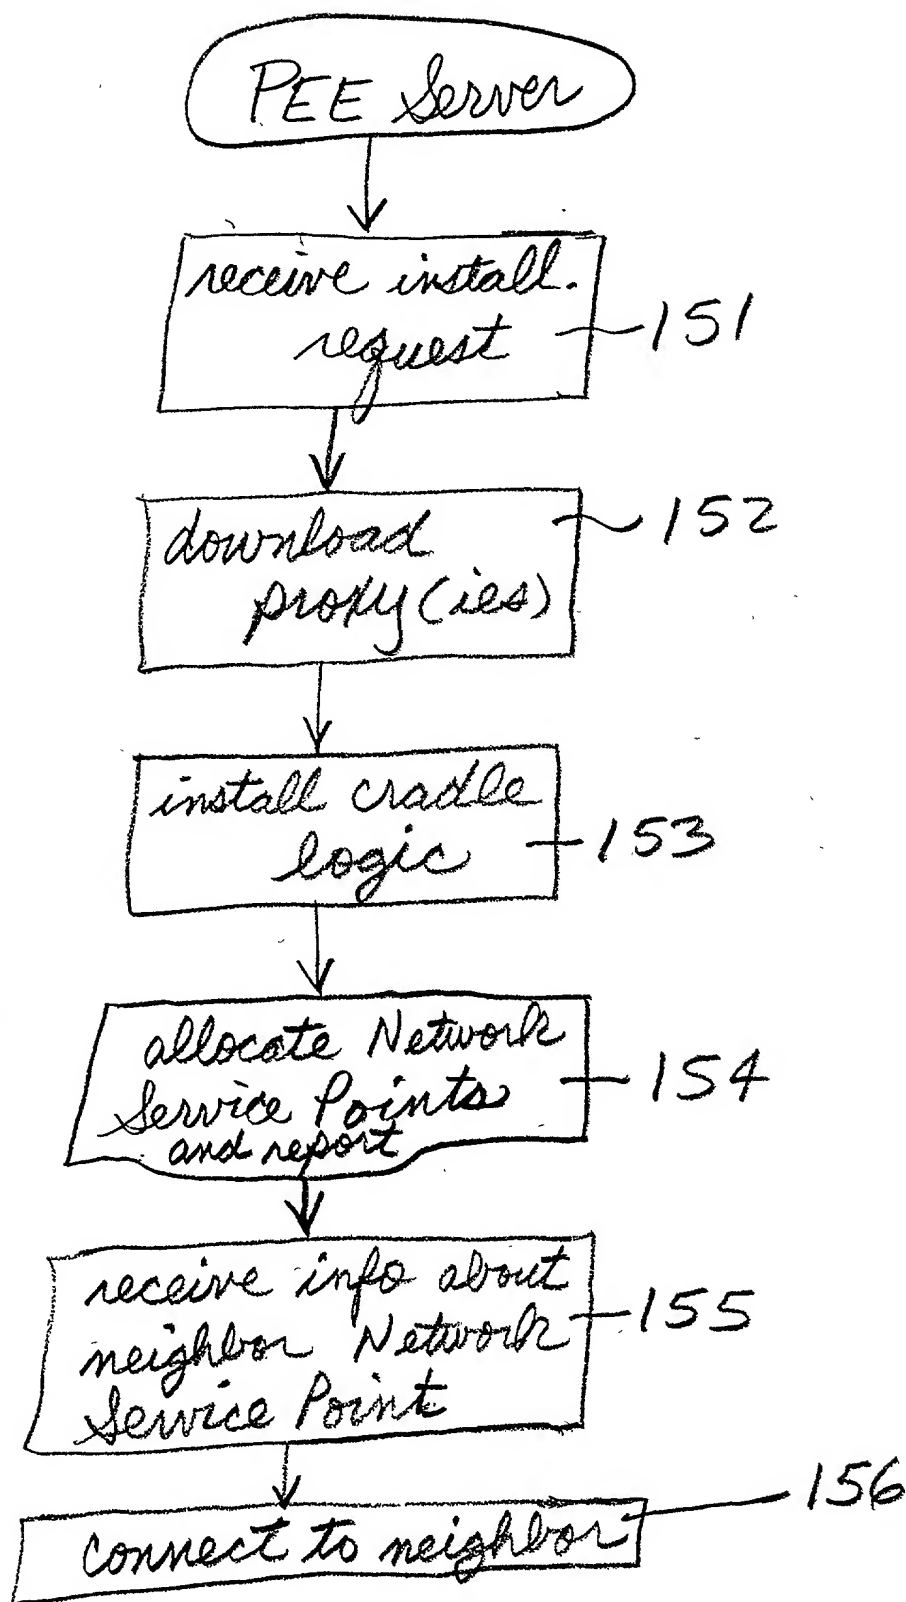 PEE Server
receive install.
request
151
152
download
proxy(ies)
install cradle
logic
153
allocate Network
Service Points
and report
154
receive info about
neighbor Network
Service Point
155
156
connect to neighbor